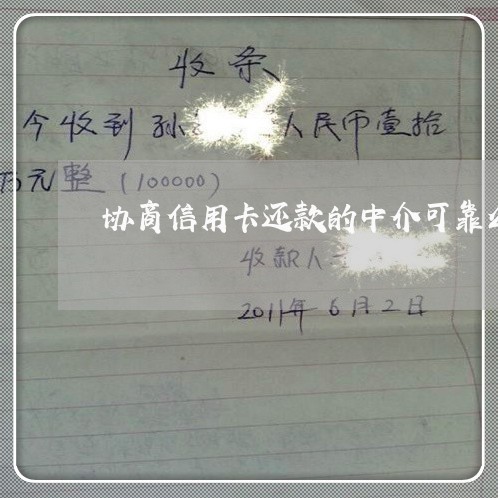 收条
今收到孙 人民币壹拾
万元整(100000)
协商信用卡还款的中介可靠
收款人
2011年6月2日